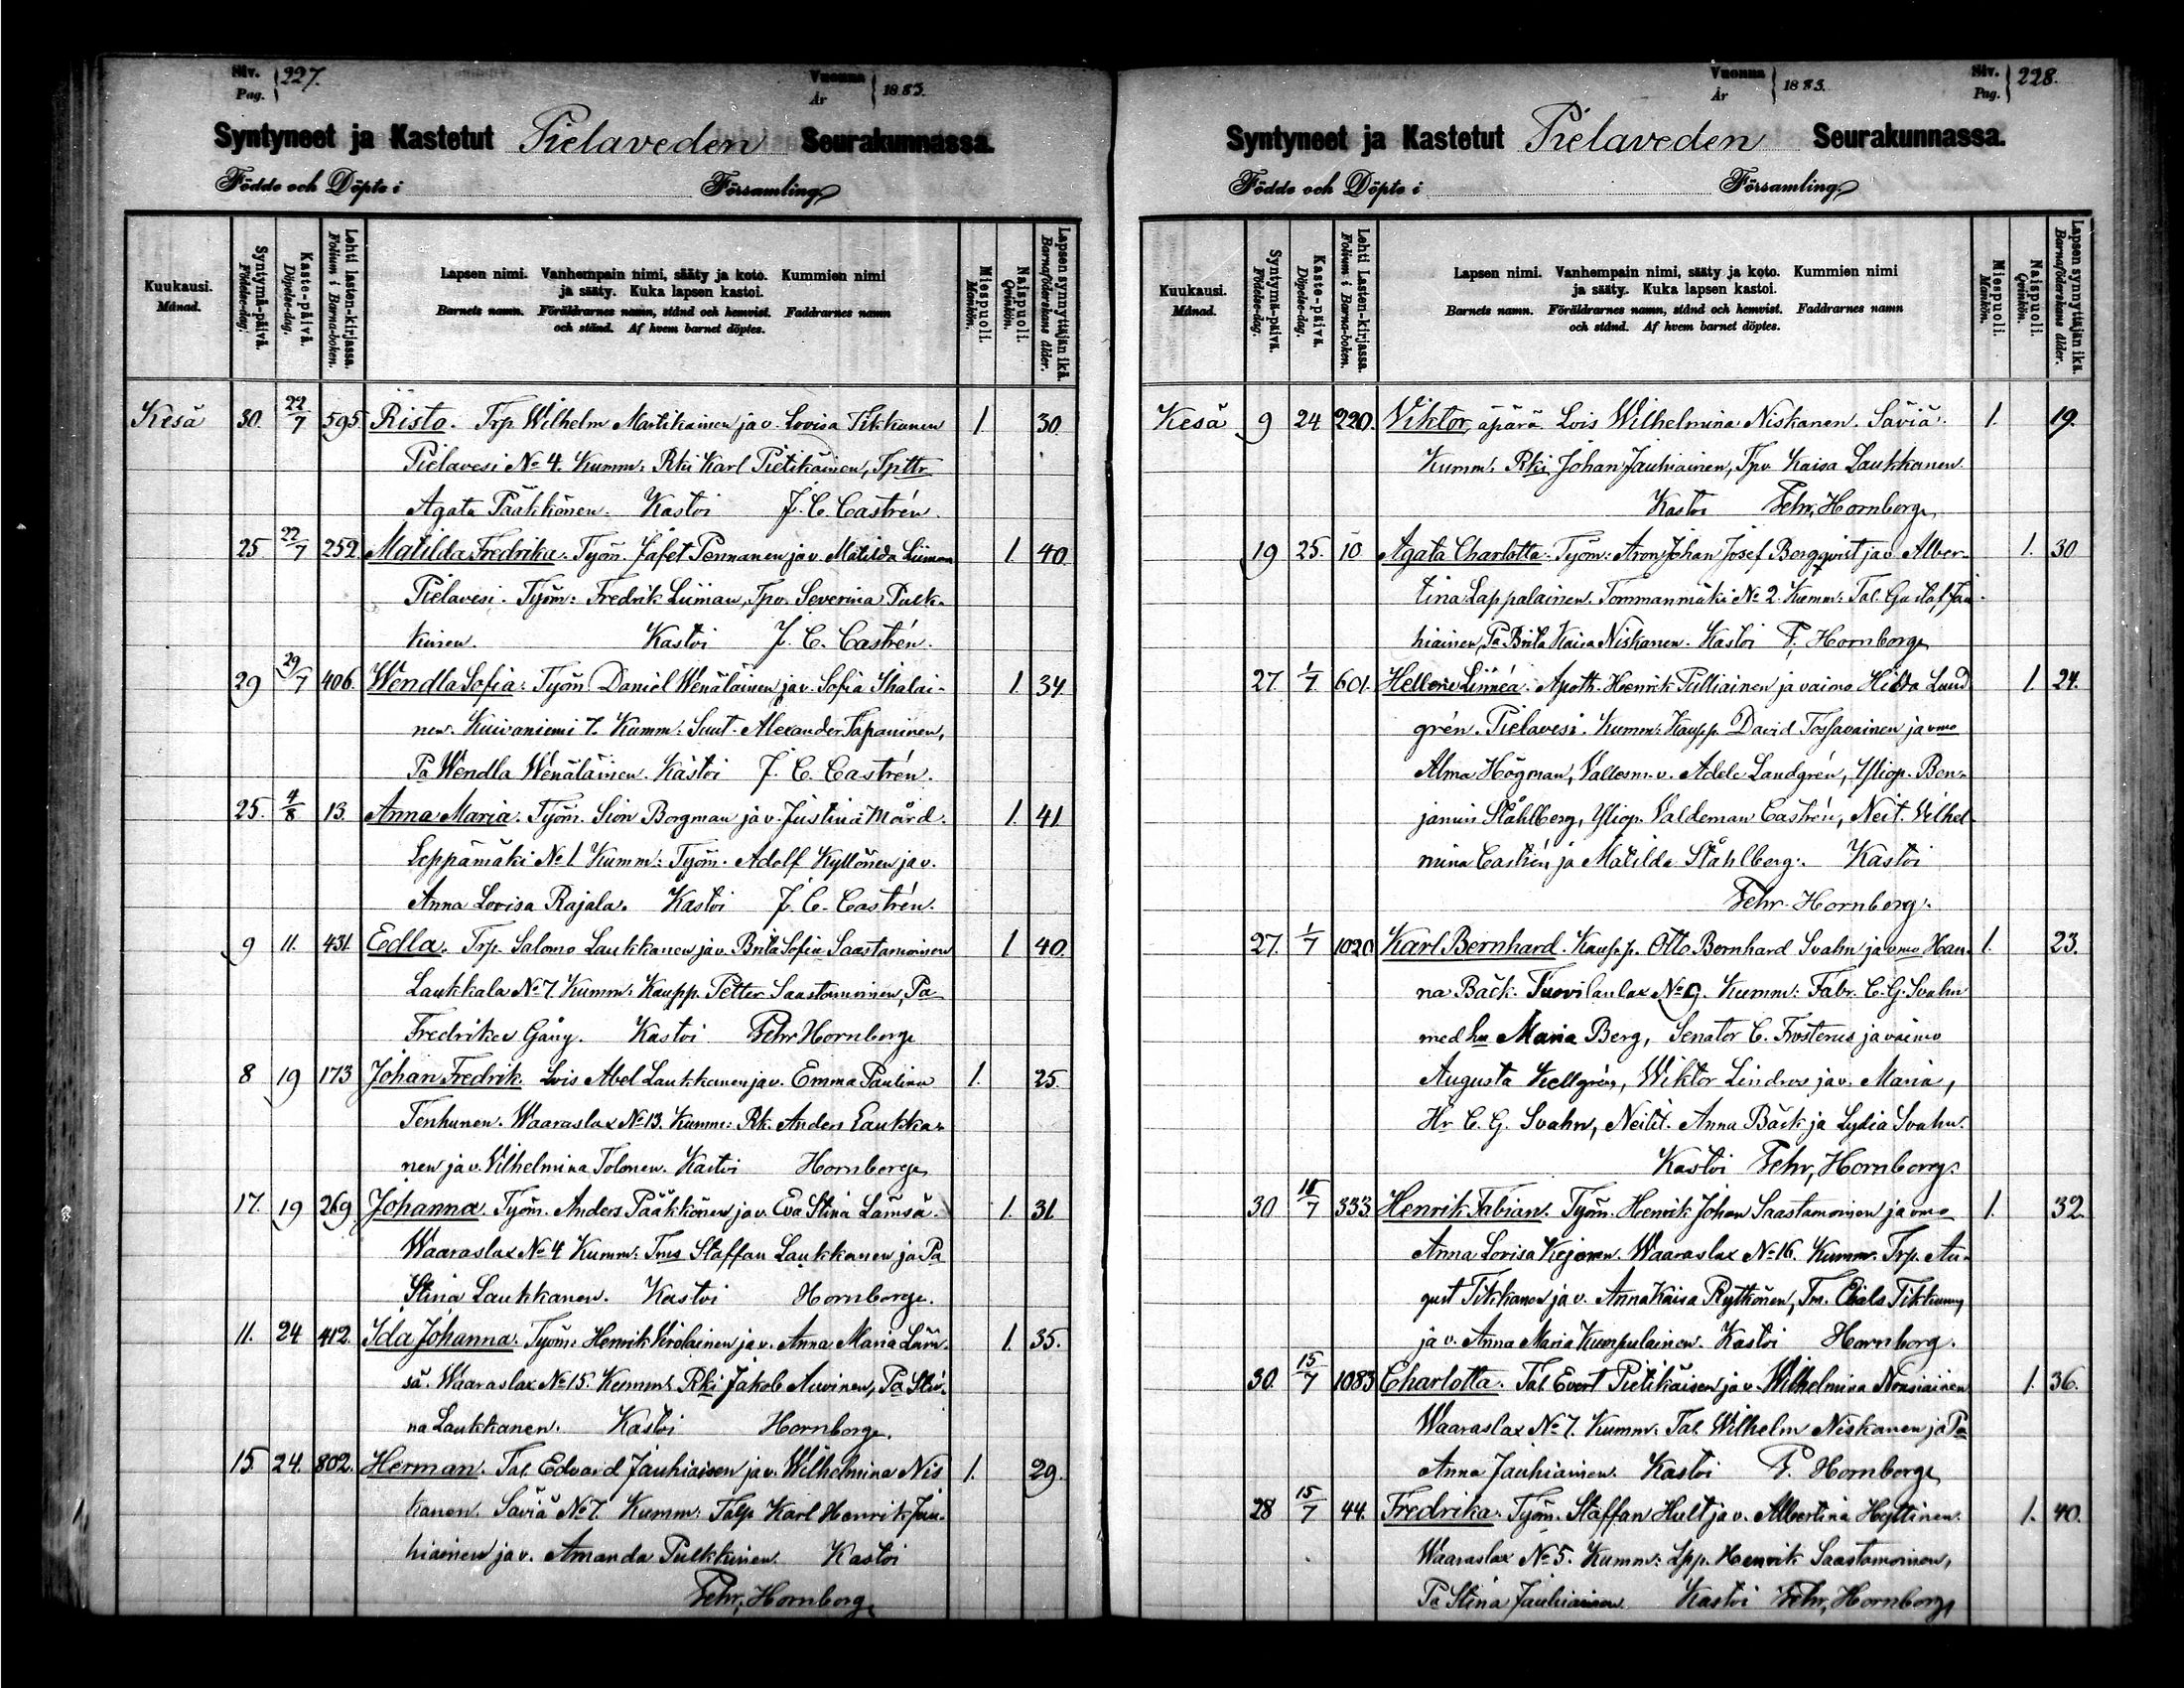 Siv. Pag. 227.
Vuonna År 1883.
Syntyneet ja Kastetut Pielaveden Seurakunnassa.
Födde och Döpte i Församling
Kuukausi. Månad.
Syntymä-päivä. Födelse-dag.
Kaste-päivä. Döpelse-dag.
Lehti lasten-kirjassa. Folium i Barna-boken.
Lapsen nimi. Vanhempain nimi, sääty ja koto. Kummien nimi
ja sääty. Kuka lapsen kastoi.
Barnets namn. Föräldrarnes namn, stånd och hemvist. Faddrarnes namn
och stånd. Af hvem barnet döptes.
Miespuoli. Mankön.
Naispuoli. Qvinkön.
Lapsen synnyttäjän ikä. Barnaföderskans ålder.
Kesä 30. 22/7 595 Risto. Trp. Wilhelm Martikainen ja v. Lovisa Tikkanen 1. 30.
Pielavesi No 4. Kumm: Rki Karl Pietikäinen, Tpttr
Agata Pääkkönen. Kastoi J. C. Castrén.
25 22/7 252. Matilda Fredrika. Työm. Jafet Pennanen ja v. Matilda Liiman 1. 40.
Pielavesi. Työm: Fredrik Liiman, Tpv. Severina Pulk-
kinen. Kastoi J. C. Castrén.
29 29/7 406. Wendla Sofia: Työm Daniel Wenäläinen ja v. Sofia Ihalai- 1. 34.
nen. Kuivaniemi 7. Kumm: Suut. Alexander Tapaninen,
Pa Wendla Wenäläinen. Kastoi J. C. Castrén.
25. 4/8 13. Anna Maria. Työm. Sion Borgman ja v. Justina Mård. 1. 41
Leppämäki No 1 Kumm: Työm. Adolf Kyllönen ja v.
Anna Lovisa Rajala. Kastoi J. C. Castrén.
9 11. 431. Edla. Trp. Salomo Laukkanen ja v. Brita Sofia Saastamoinen 1 40.
Laukkala No 7. Kumm: Kaupp. Petter Saastamoinen, Pa
Fredrika Kastoi Fehr. Hornborg
8 19 173 Johan Fredrik. Lois Abel Laukkanen ja v. Emma Paulina 1. 25.
Tenhunen. Waaraslax No 13. Kumm: Rk. Anders Laukka-
nen ja v. Vilhelmina Tolonen. Kastoi Hornborg
17. 19 269 Johanna. Työm. Anders Pääkkönen ja v. Eva Stina Lämsä. 1. 31.
Waaraslax No 4 Kumm: Tms Staffan Laukkanen ja Pa
Stina Laukkanen. Kastoi Hornborg.
11. 24 412. Ida Johanna. Työm. Henrik Wirolainen ja v. Anna Maria Läm- 1. 35.
sä. Waaraslax No 15. Kumm: Rki Jakob Auvinen, Pa Sti-
na Laukkanen. Kastoi Hornborg.
15 24. 802. Herman. Tal. Edvard Jauhiainen ja v. Wilhelmina Nis 1. 29.
kanen. Säviä No 7. Kumm: Talp. Karl Henrik Jau-
hiainen ja v. Amanda Pulkkinen. Kastoi
Fehr. Hornborg
Siv. Pag. 228.
Vuonna År 1883.
Syntyneet ja Kastetut Pielaveden Seurakunnassa.
Födde och Döpte i Församling
Kuukausi. Månad.
Syntymä-päivä. Födelse-dag.
Kaste-päivä. Döpelse-dag.
Lehti Lasten-kirjassa. Folium i Barna-boken.
Lapsen nimi. Vanhempain nimi, sääty ja koto. Kummien nimi
ja sääty. Kuka lapsen kastoi.
Barnets namn. Föräldrarnes namn, stånd och hemvist. Faddrarnes namn
och stånd. Af hvem barnet döptes.
Miespuoli. Mankön.
Naispuoli. Qvinkön.
Lapsen synnyttäjän ikä. Barnaföderskans ålder.
Kesä 9 24 220. Viktor, äpärä Lois Wilhelmina Niskanen. Säviä. 1. 19.
Kumm: Rki Johan Jauhiainen, Tpv. Kaisa Laukkanen.
Kastoi Fehr. Hornborg
19 25. 10 Agata Charlotta. Työm: Aron Johan Josef Borgqvist ja v. Alber- 1. 30
tina Lappalainen. Tommanmäki No 2. Kumm: Tal. Gustaf Jau-
hiainen, Pa Brita Kaisa Niskanen. Kastoi F. Hornborg
27. 1/7 601. Linnéa. Apoth. Henrik Pulliainen ja vaimo Hilda Lund 1. 24.
grén. Pielavesi. Kumm: Kaupp. David Tossavainen ja vmo
Alma Högman, Vallesm. v. Adele Landgrén, Yliop. Ben-
jamin Ståhlberg, Yliop. Valdemar Castrén, Neit. Vilhel-
mina Castrén ja Matilda Ståhlberg. Kastoi
Fehr. Hornborg.
27. 1/7 1020 Karl Bernhard. Kaupp. Otto Bernhard Svahn ja vmo Han- 1. 23.
na Bäck. Tuovilanlax No 9. Kumm: Fabr. C. G. Svahn
med hu Maria Berg, Senator C. Frosterus ja vaimo
Augusta Kellgrén, Wiktor Lindros ja v. Maria,
Hr C. G. Svahn, Neitit. Anna Bäck ja Lydia Svahn.
Kastoi Fehr. Hornborg.
30 15/7 333 Henrik Fabian. Työm. Henrik Johan Saastamoinen ja vmo 1. 32.
Anna Lovisa Waaraslax No 16. Kumm: Trp. Au-
gust Tikkanen ja v. Anna Kaisa Rytkönen, Tm. Tikkanen
ja v. Anna Maria Kumpulainen. Kastoi Hornborg.
30. 15/7 1083 Charlotta. Tal. Evert Pietikäinen ja v. Wilhelmina Nousiainen 1. 36.
Waaraslax No 7. Kumm: Tal. Wilhelm Niskanen ja Pa
Anna Jauhiainen. Kastoi F. Hornborg
28 15/7 44. Fredrika. Työm. Staffan Hult ja v. Albertina Hyttinen. 1. 40.
Waaraslax No 5. Kumm: Lpp. Henrik Saastamoinen,
Pa Stina Jauhiainen. Kastoi Fehr. Hornborg